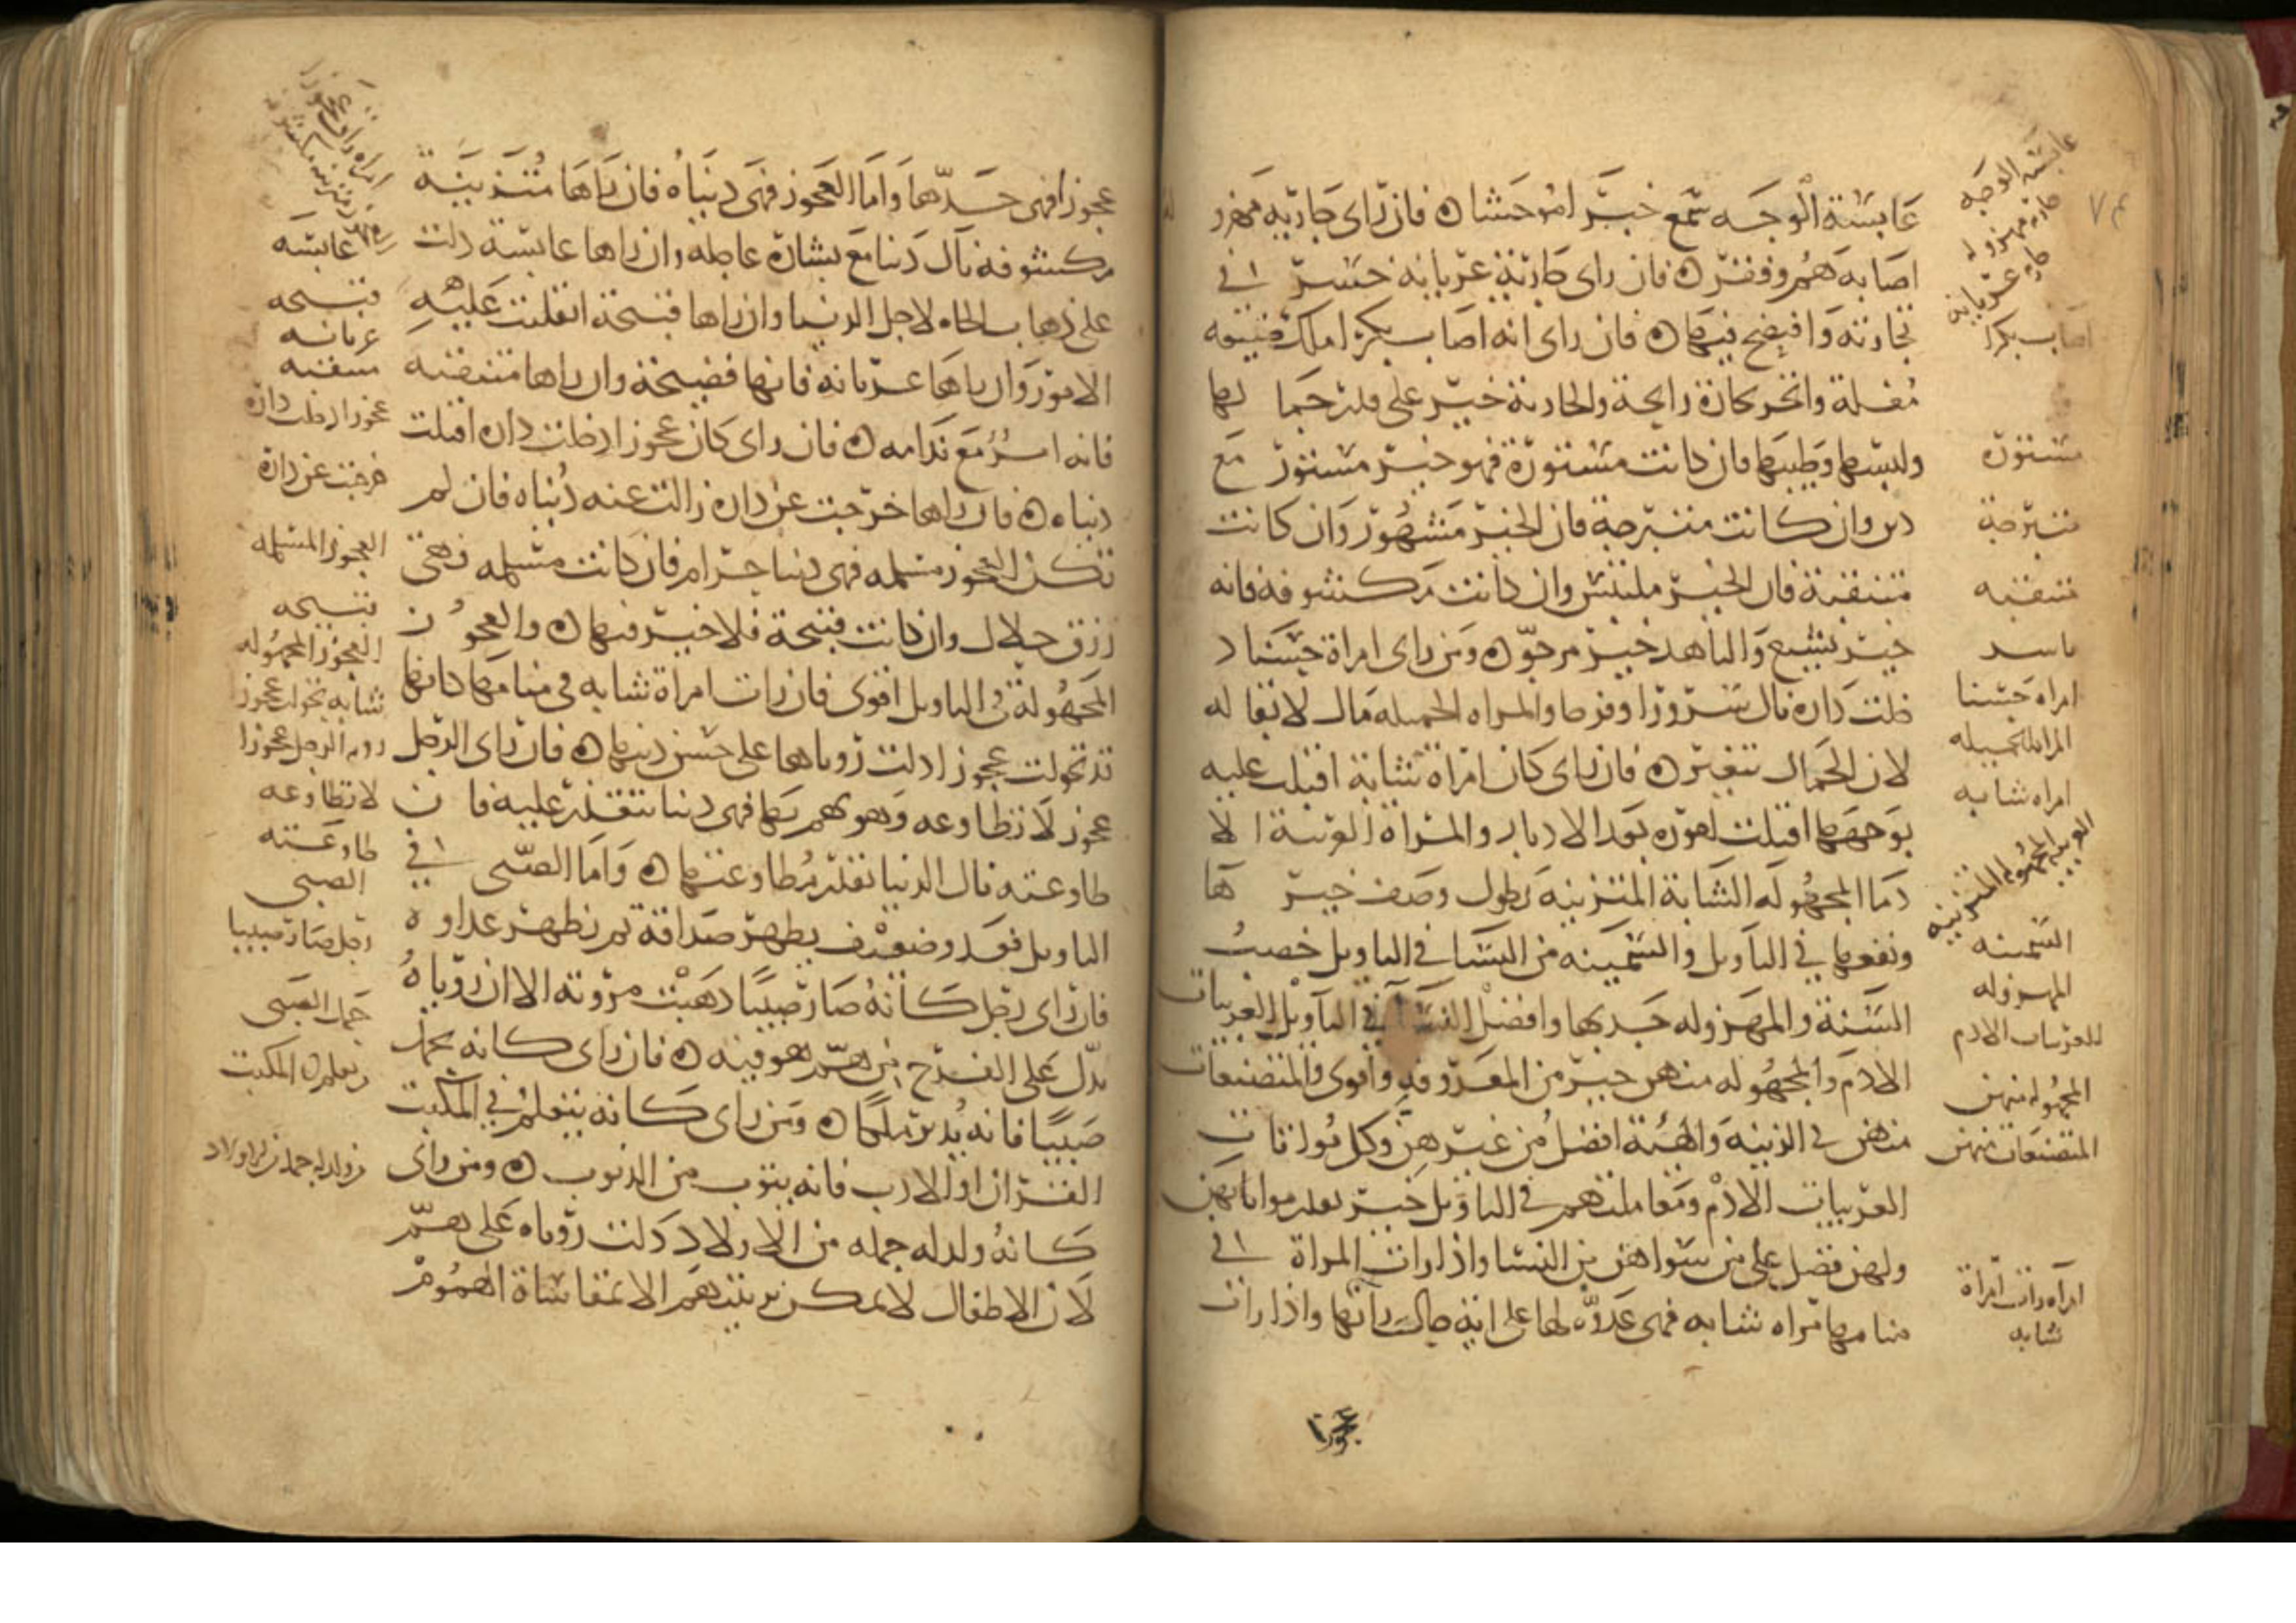 ٧٤
عابسة الوجه سمع خبر امر وحشا ن فان راى جارية مهزو
اصابه هم وفقر ن فان راى جارية عريانة خسر في
تجارته وافتضح فيها ن فان راى انه اصاب بكرا ملك ضيعه
مغلة واتجر تجارة رابحة والجارية خير على قدر جمالها
ولبسها وطيبها فان كانت مستورة فهو خير مستور مع
دين وان كانت متبرجة فان الخبر مشهور وان كانت
متنقبة فان الخبر ملتبس وان كانت مكشوفة فانه
خبر يشيع والناهد خير مرجو ن ومن راى امراة حسنا د
خلت داره نال سرورا وفرحا والمراه الجميله مال لا بقا له
لان الجمال يتغير ن فان راى كان امراة شابة اقبلت عليه
بوجهها اقبلت اموره بعد الادبار والمراة العربية الا
دما المجهوله الشابة المتزينه يطول وصف خير ها
ونفعها في التاويل والسمينه من النسا في التاويل خصب
السنة والمهزوله جدبها وافضل النسا في التاويل العربيات
الادم والمجهوله منهن خير من المعروفه واقوى والمتصنعات
منهن في الزينه والهيئة افضل من غيرهن وكل مواتات
العربيات الادم ومعاملتهم في التاويل خير بقدر مواتاتهن
ولهن فضل على من سواهن من النسا واذا رات المراة في
منامها مراه شابه فهى عدوة لها على اية حال راتها واذا رات
عجوزا
عابسة الوجه
جاريه مهزوله
جاريه عريانه
اصاب بكرا
مستورة
متبرجة
متنقبه
امراه حسنا
المراه الجميله
امراه شابه
العربيه المجهوله المتزينه
السمينه
المهزوله
العربيات الادم
المجهوله منهن
المتصنعات منهن
امراه رات امراة
شابه
عجوزا فهى جدها واما العجوز فهى دنياه فان راها متزينة
مكشوفه نال دنيا مع بشارة عاجله وان راها عابسة دلت
على ذهاب الجاه لاجل الدنيا وان راها قبيحة انقلبت عليه
الامور وان راها عريانة فانها فضيحة وان راها متنقبه
فانه امر مع ندامه ن فان راى كان عجوزا دخلت داره اقبلت
دنياه ن فان راها خرجت عن داره زالت عنه دنياه فان لم
تكن العجوز مسلمه فهى دنيا حرام فان كانت مسلمه فهى
رزق حلال وان كانت قبيحة فلا خير فيها ن والعجو ز
المجهولة في التاويل اقوى فان رات امراة شابه في منامها كانها
قد تحولت عجوزا دلت روياها على حسن دينها ن فان راى الرجل
عجوز لا تطاوعه وهو يهم بها فهى دنيا تتعذر عليه فا ن
طاوعته نال الدنيا بقدر مطاوعتها ن واما الصبى في
التاويل فعدو ضعيف يظهر صداقة ثم يظهر عداو ة
فان راى رجل كانه صار صبيا ذهبت مروته الا ان روياه
تدل على الفرج من هم هو فيه ن فان راى كانه يحمل
صبيا فانه يدبر ملكا ن ومن راى كانه يتعلم في المكتب
القران او الادب فانه يتوب من الذنوب ن ومن راى
كانه ولد له جمله من الاولاد دلت روياه على هم
لان الاطفال لا يمكن تربيتهم الا بمقاساة الهموم
عابسه
قبيحه
عريانه
متنقبه
عجوزا دخلت داره
خرجت عن داره
العجوز المسلمه
قبيحه
العجوز المجهوله
شابه تحولت عجوز
رويه الرجل عجوزا
لا تطاوعه
طاوعته
الصبى
رجل صار صبيا
حمل الصبى
وتعلم في المكتب